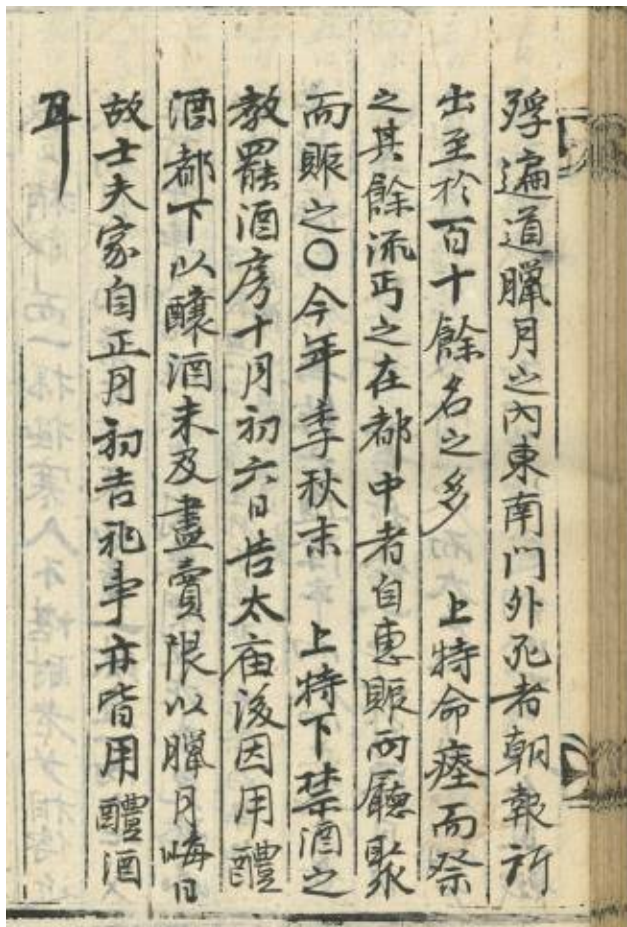 殍遍道臘月之內東南门外死者朝報所
出至於百十餘名之多 上特命瘞而祭
之其餘流丐之在都中者自惠賑兩廳聚
而賑之〇今年季秋末 上特下禁酒之
教罷酒房十月初六日告太庙後因用醴
酒都下以釀酒未及盡賣限以臘月晦日
故士夫家自正月初吉祀事亦皆用醴酒
耳